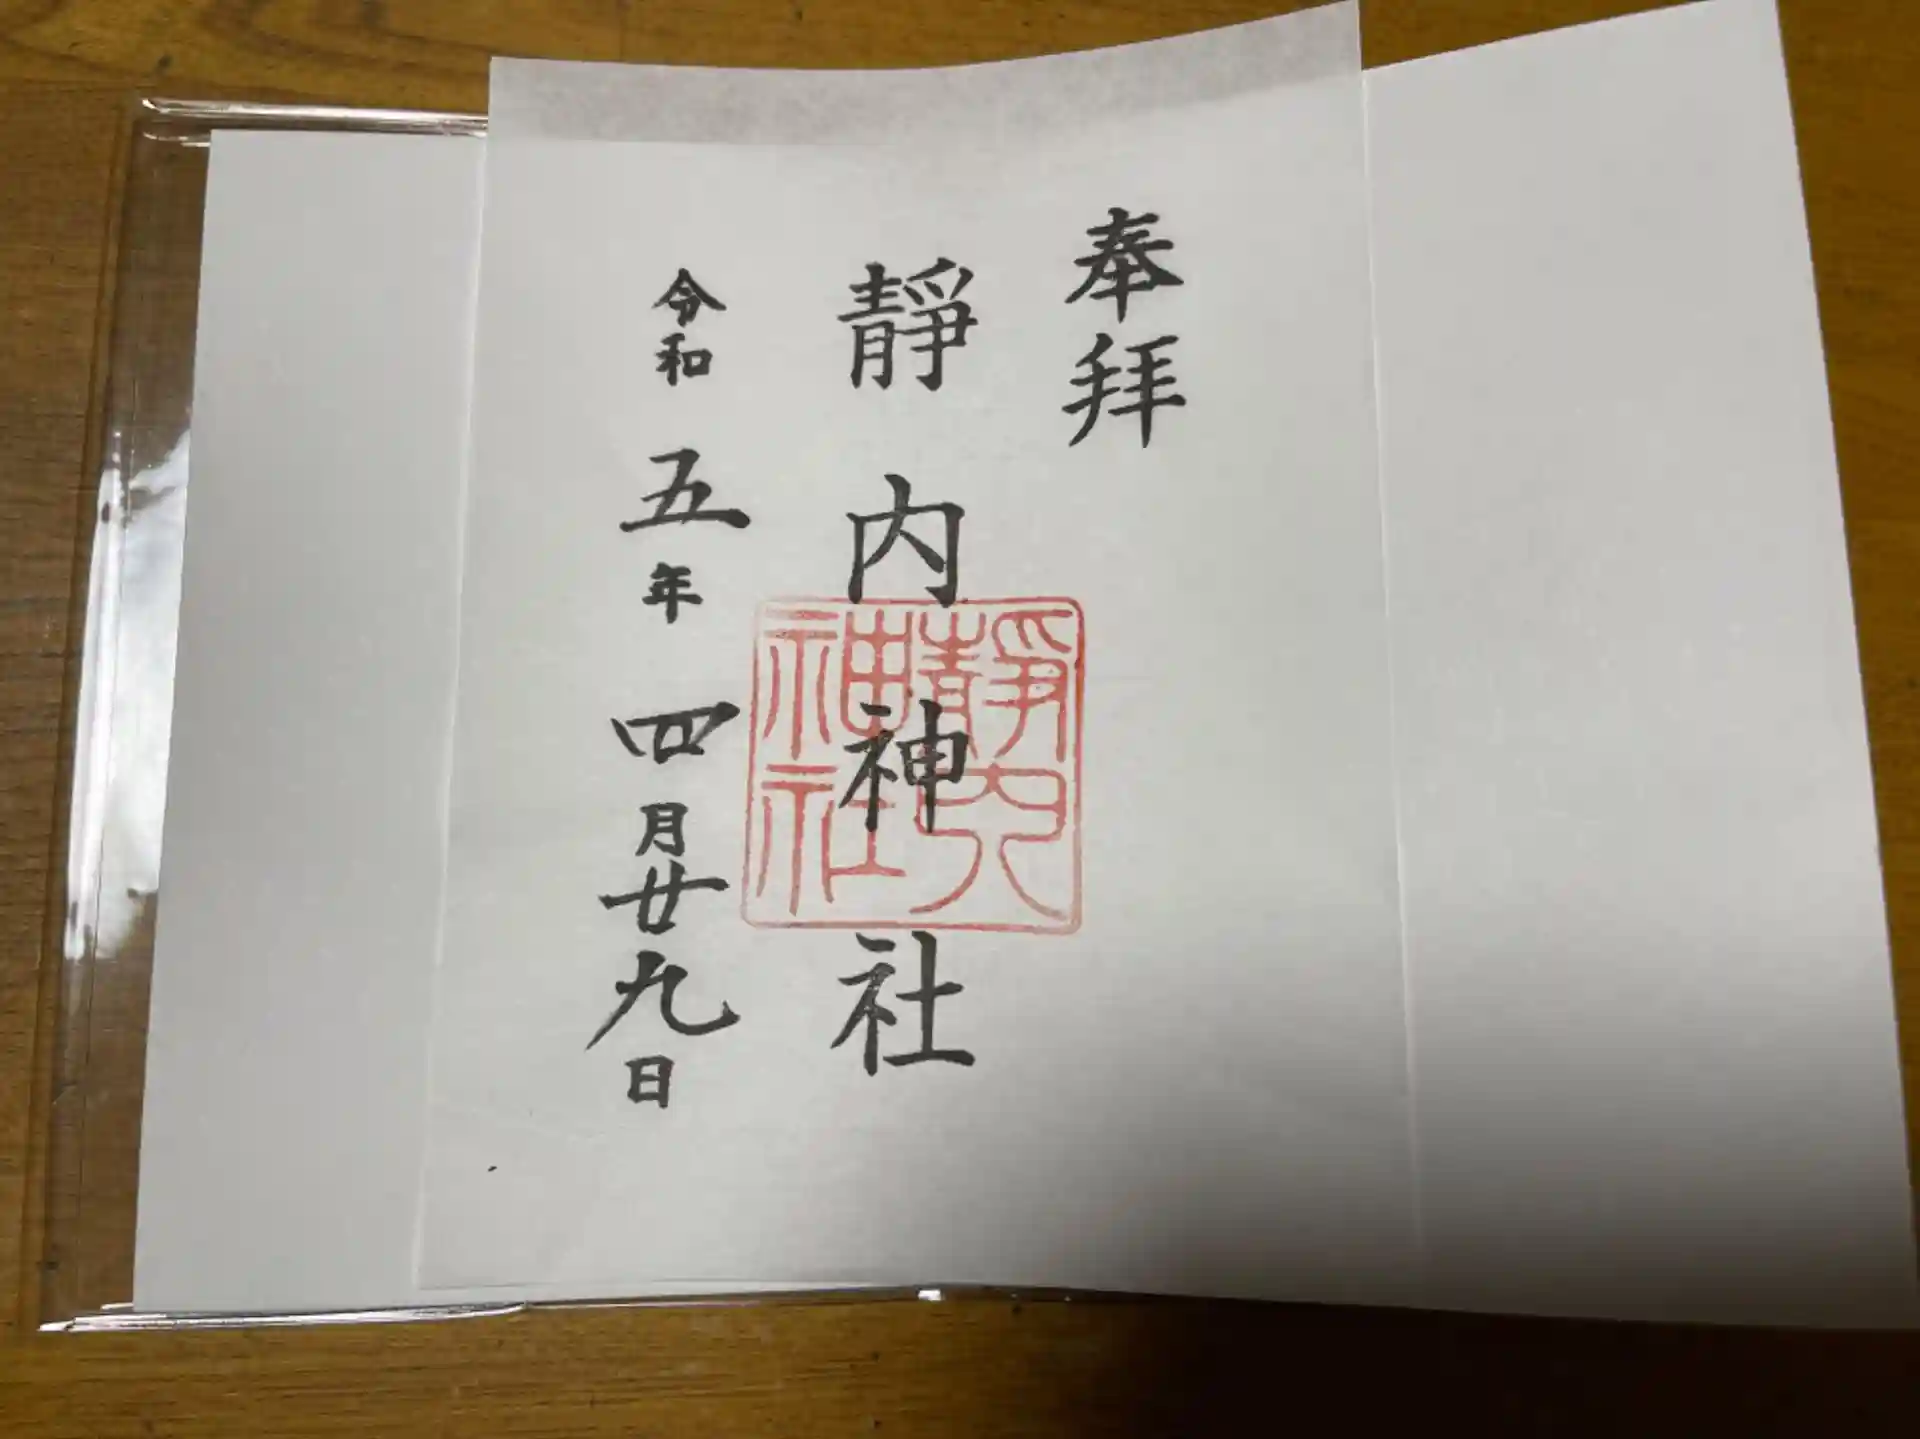 奉拝
靜内神社
靜内神社
令和五年四月廿九日